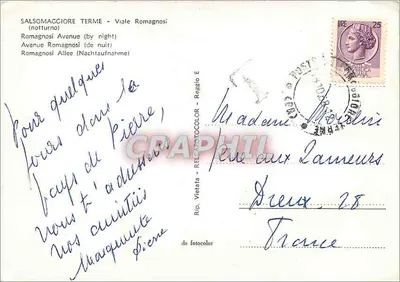 SALSOMAGGIORE TERME - Viale Romagnosi
(notturno)
Romagnosi Avenue (by night)
Avenue Romagnosi (de nuit)
Romagnosi Allee (Nachtaufnahme)
Pour quelques
jours dans le
pays de Pierre,
nous t'adressons
nos amitiés
Marguerite
Pierre
Rip. Vietata - RELOTOCOLOR - Reggio E
da fotocolor
LIRE 25
T
CRAPHTI
Madame
aux Tanneurs
Dreux, 28
France